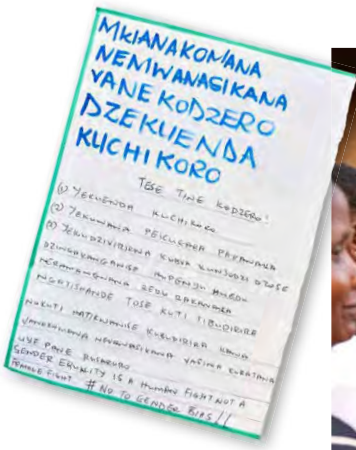 MKIANAKOMANA
NEMWANASIKANA
VANE KODZERO
DZEKUENDA
KUCHIKORO
TESE TINE KODZERO!
(1) YEKUENDA KUCHIKORO
(2) YEKUWANA PEKUGARA PAKANAKA
(3) YEKUDZIVIRIRWA KUBVA KUNJODZI DZOSE
DZINGAKANGANISE HUPENYU HWEDU
NERAMANGWANA REDU RAKANAKA
NGATISHANDE TOSE KUTI TIBUDIRIRE
NOKUTI HATIKWANISE KUBUDIRIRA KANA
VANAKOMANA NEVANASIKANA VASINA KUBATANA
UYE PANE RUSARURO
GENDER EQUALITY IS A HUMAN FIGHT NOT A
FEMALE FIGHT # NO TO GENDER BIAS!!